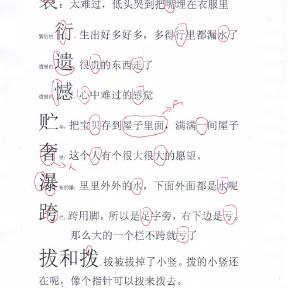 裒：太难过，低头哭到把嘴埋在衣服里
繁衍的 衍，生出好多好多，多得行里都漏水了
遗憾的 遗，很贵的东西走了
遗憾的 憾，心中难过的感觉
贮 存，把宝贝存到屋子里面，满满一间屋子
奢 想，这个人有个很大很大的愿望。
瀑 布的瀑，里里外外的水，下面外面都是水呢
跨 越，跨用脚，所以是足字旁，右下边是亏，
那么大的一个栏不跨就亏了
拔和拨，拔被拔掉了小竖。拨的小竖还
在呢，像个指针可以拨来拨去。